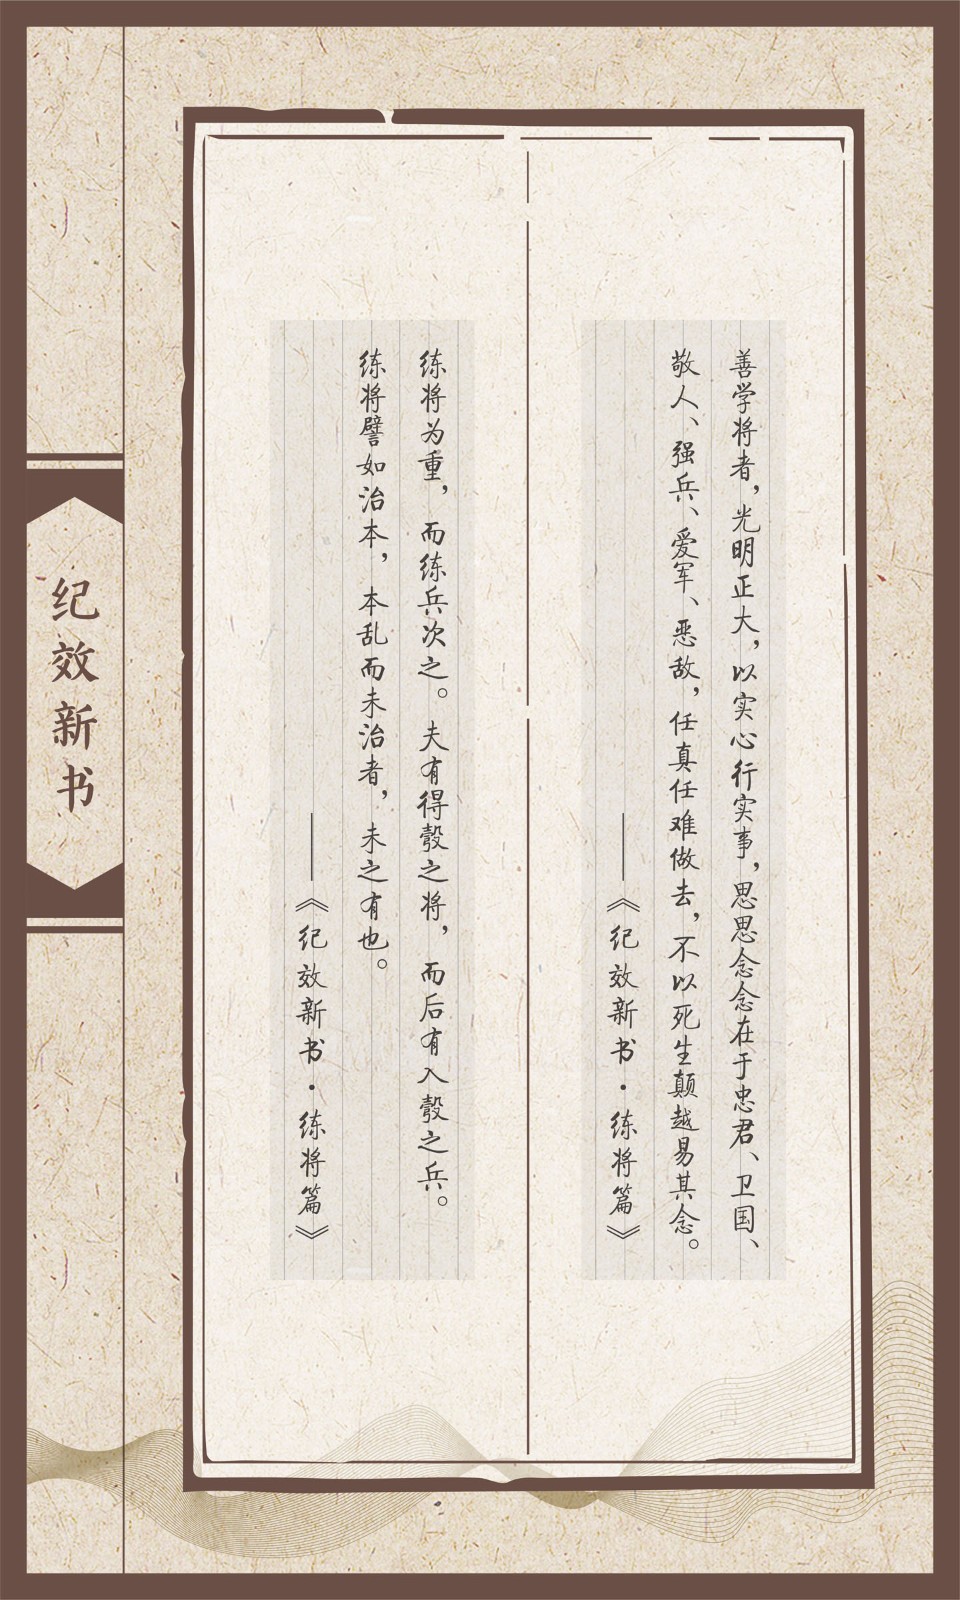 善学将者，光明正大，以实心行实事，思思念念在于忠君、卫国、
敬人、强兵、爱军、恶敌，任真任难做去，不以死生颠越易其念。
——《纪效新书·练将篇》
练将为重，而练兵次之。夫有得彀之将，而后有入彀之兵。
练将譬如治本，本乱而未治者，未之有也。
——《纪效新书·练将篇》
纪效新书